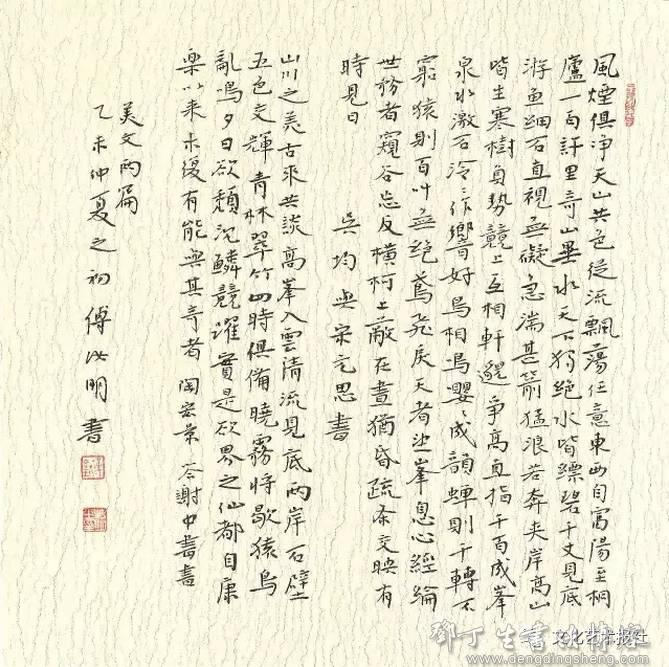 風煙俱净天山共色從流飄蕩任意東西自富陽至桐
廬一百許里奇山異水天下獨絶水皆縹碧千丈見底
游魚細石直視無礙急湍甚箭猛浪若奔夹岸高山
皆生寒樹負勢競上互相軒邈争高直指千百成峯
泉水激石泠〻作響好鳥相鳴嚶〻成韻蟬則千轉不
窮猿則百叫無絶鳶飛戾天者望峯息心經綸
世務者窺谷忘反横柯上蔽在晝猶昏疏条交映有
時見日
吳均與宋元思書
山川之美古來共談高峯入雲清流見底兩岸石壁
五色交輝青林翠竹四時俱備曉霧將歇猿鳥
亂鳴夕日欲頹沉鱗競躍實是欲界之仙都自康
樂以来未復有能與其奇者陶宏景答謝中書書
美文兩篇
乙未仲夏之初傅汝明書
鄧丁生書法博客
文化艺术报社
www.dengdingsheng.com